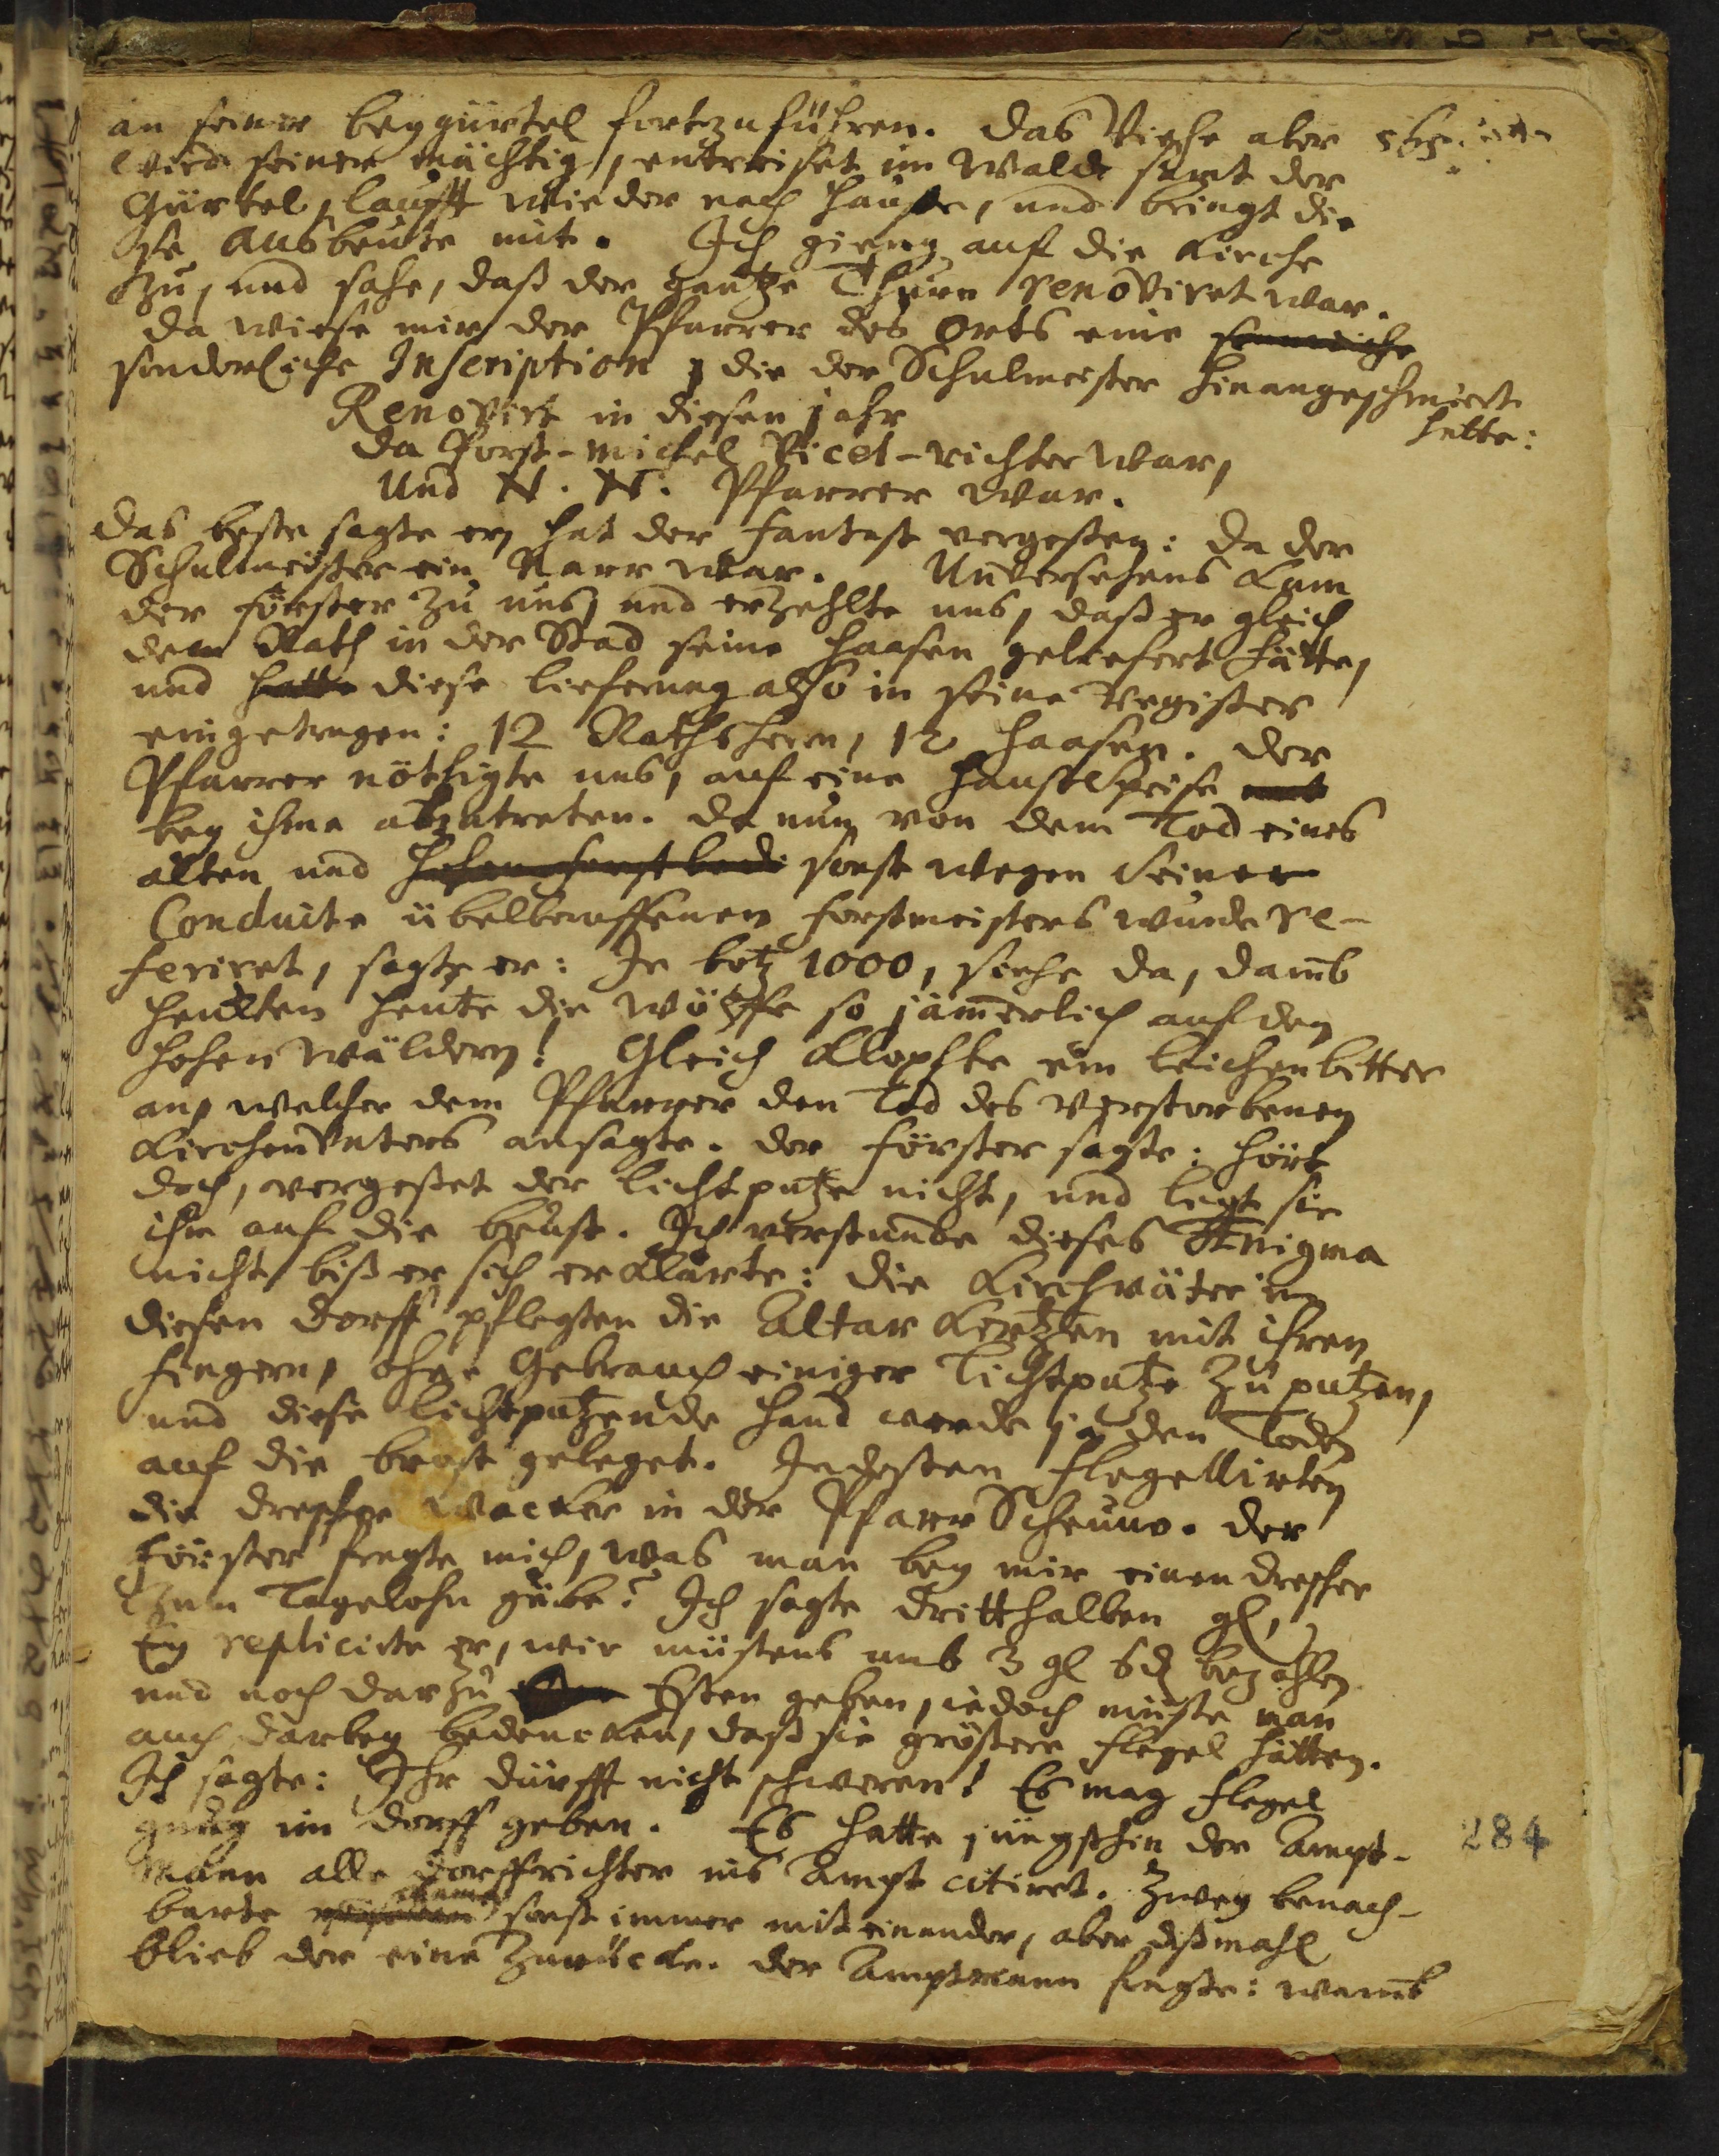 an seiner beygürtel fortzuführen. das Viehe aber
wird seiner mächtig, entreiset im Walde samt der
Gürtel, laufft wieder nach hause, und bringt die
se Ausbeute mit. Ich gieng auf die Kirche
zu, und sahe, daß der gantze Thurn renoviret war.
da wiese mir der Pfarrer des Orts eine
sonderliche Inscription, die der Schulmeister hinangeschmiert
hette:
Renovirt in diesen jahr
da Horst-michel Vicet-richter war,
Und N. N. Pfarrer war.
das beste sagte er, hat der fantast vergeßen: da der
Schulmeister ein Narr war. Unversehens kam
der förster zu uns, und erzehlte uns, daß er gleich
dem Rath in der Stad seine Haasen geliefert hätte,
und hatte diese lieferung also in seine Register
eingetragen: 12 Rathsherrn, 12 Haasen. der
Pfarrer nöthigte uns, auf eine Haußspeise mit
bey ihme abzutreten. da nun von dem Tod eines
alten und sonst wegen seiner
Conduite übelberuffenen forstmeisters wurde re-
feriret, sagte er: Je botz 1000, siehe da, damb
heulten heute die Wölffe so jämerlich auf den
hohen Wäldern! Gleich klopfte ein leichenbitter
an, welcher dem Pfarrer den Tod des verstorbenen
Kirchenvaters ansagte. der förster sagte: hört
doch, vergeßet der lichtputze nicht, und legt sie
ihm auf die brust. Ich verstunde dieses Ænigma
nicht, biß er sich erklärte: die Kirchväter in
diesen dorff pflegten die Altar Kertzen mit ihren
fingern, ohne Gebrauch einiger lichtputze zu putzen,
und diese lichtputzende hand werde ja den Toden
auf die brust geleget. Indeßen flegellirten
die drescher wacker in der Pfarr Scheune. der
förster fragte mich, was man bey mir einen drescher
zum Tagelohn gäbe? Ich sagte dritthalben gl,
Ey replicirte er, wir müstens umb 3 gl 6 d bezahlen
und noch darzu Eßen geben, iedoch müste man
auch darbey bedencken, daß sie größere flegel hätten.
Ich sagte: Ihr dürfft nicht schweren! Es mag flegel
gnug im dorff geben. Es hatte jüngsthin der Ampt-
mann alle dorffrichter ins Ampt citiret. Zwey benach-
barte kamen sonst immer mit einander, aber dißmahl
blieb der eine zurücke. der Amptmann fragte: warumb
284